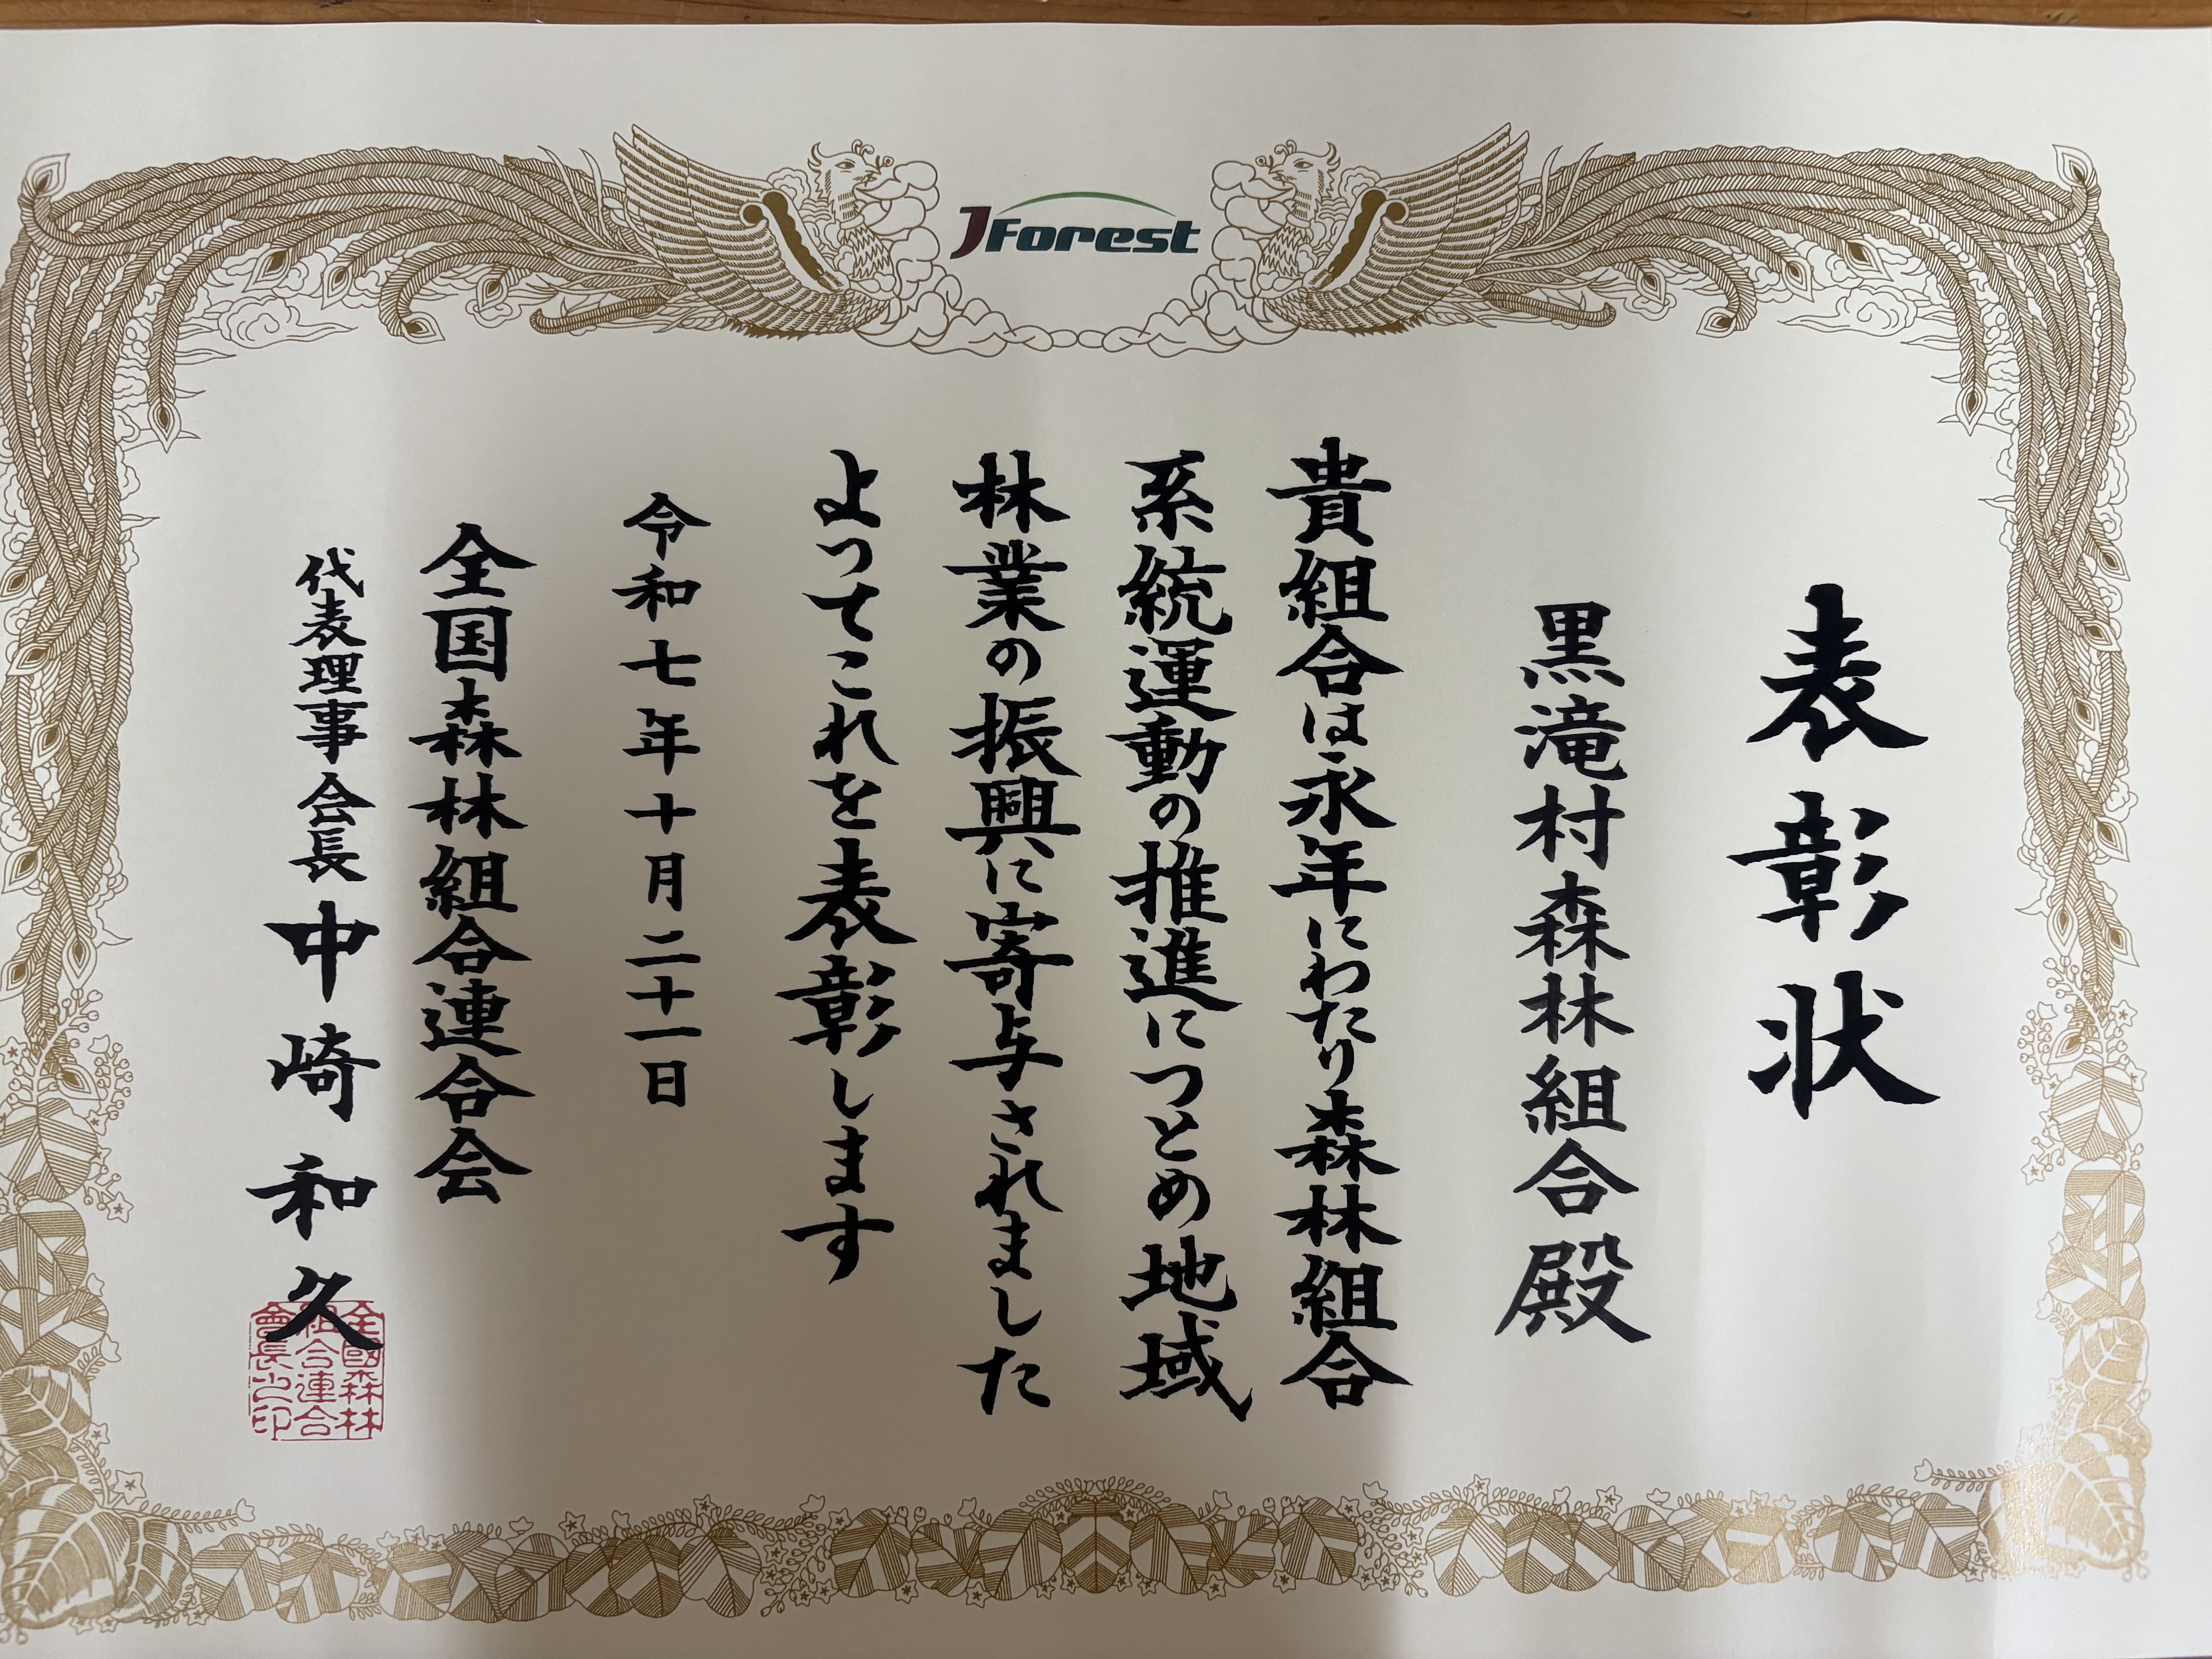 JForest
表彰状
黒滝村森林組合殿
貴組合は永年にわたり森林組合
系統運動の推進につとめ地域
林業の振興に寄与されました
よってこれを表彰します
令和七年十月二十一日
全国森林組合連合会
代表理事会長 中崎和久
全國森林
組合連合
會長之印